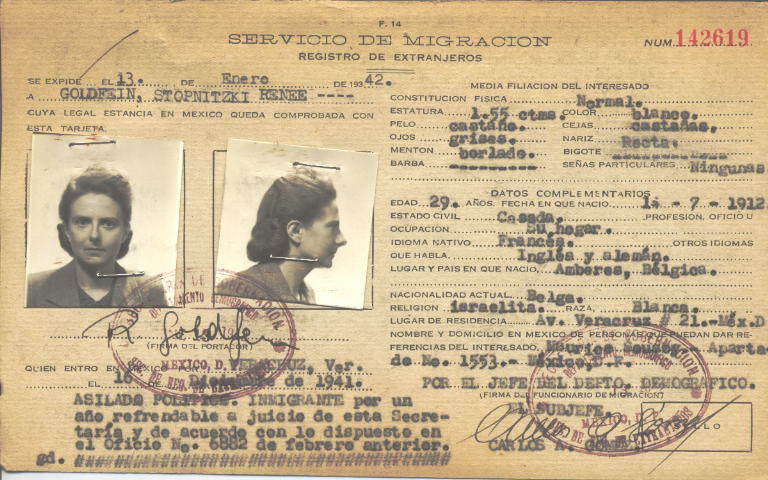 F. 14
SERVICIO DE MIGRACION
REGISTRO DE EXTRANJEROS
NUM. 142619
SE EXPIDE EL 13. DE Enero DE 19342.
A GOLDFEIN, STOPNITZKI RENEE ----
CUYA LEGAL ESTANCIA EN MEXICO QUEDA COMPROBADA CON
ESTA TARJETA.
R Goldfein
(FIRMA DEL PORTADOR)
QUIEN ENTRO EN MEXICO POR VERACRUZ, Ver.
EL 16 DE Diciembre de 1941.
ASILADO POLITICO. INMIGRANTE por un
año refrendable a juicio de esta Secre-
taría y de acuerdo con lo dispuesto en
el Oficio No. 6882 de febrero anterior.
gd. ################################
MEDIA FILIACION DEL INTERESADO
CONSTITUCION FISICA Normal.
ESTATURA 1.55 ctms. COLOR blanco.
PELO castaño. CEJAS castañas.
OJOS grises. NARIZ Recta.
MENTON borlado. BIGOTE
BARBA --------- SEÑAS PARTICULARES Ningunas
DATOS COMPLEMENTARIOS
EDAD 29. AÑOS. FECHA EN QUE NACIO. - 7 - 1912
ESTADO CIVIL Casada. PROFESION, OFICIO U
OCUPACION Su hogar.
IDIOMA NATIVO Francés. OTROS IDIOMAS
QUE HABLA. Inglés y alemán.
LUGAR Y PAIS EN QUE NACIO, Amberes, Bélgica.
NACIONALIDAD ACTUAL Belga.
RELIGION israelita. RAZA, Blanca.
LUGAR DE RESIDENCIA Av. Veracruz # 21.-Méx.D
NOMBRE Y DOMICILIO EN MEXICO DE PERSONAS QUE PUEDAN DAR RE-
FERENCIAS DEL INTERESADO, Maurice Aparta-
do No. 1553.- México, D.F.
POR EL JEFE DEL DEPTO. DEMOGRAFICO.
(FIRMA DEL FUNCIONARIO DE MIGRACION)
EL SUBJEFE,
SELLO
CARLOS A. GOMEZ
MEXICO, D. F.
MEXICO, D. F.